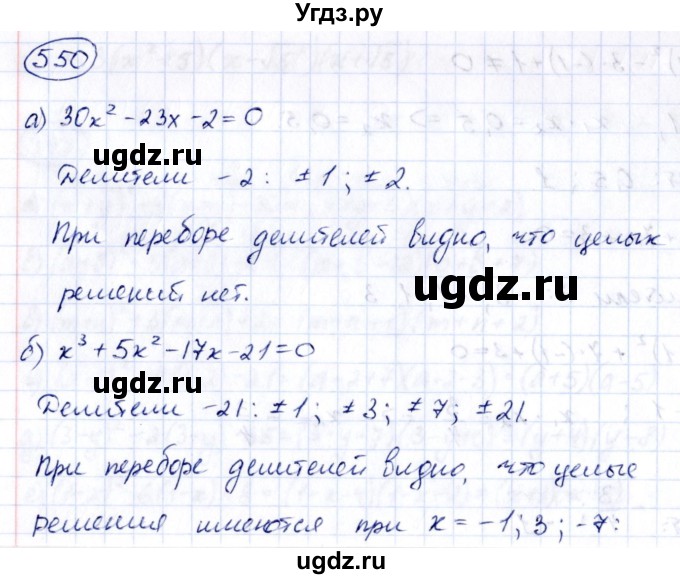 Угдз.ру
550
а) 30x² - 23x - 2 = 0
ugdz.ru ugdz.ru
Делители -2: ±1; ±2.
При переборе делителей видно, что целых
решений нет.
ugdz.ru
б) x³ + 5x² - 17x - 21 = 0
ugdz.ru ugdz.ru
Делители -21: ±1; ±3; ±7; ±21.
При переборе делителей видно, что целые
ugdz.ru ugdz.ru
решения имеются при x = -1; 3; -7:
ugdz.ru